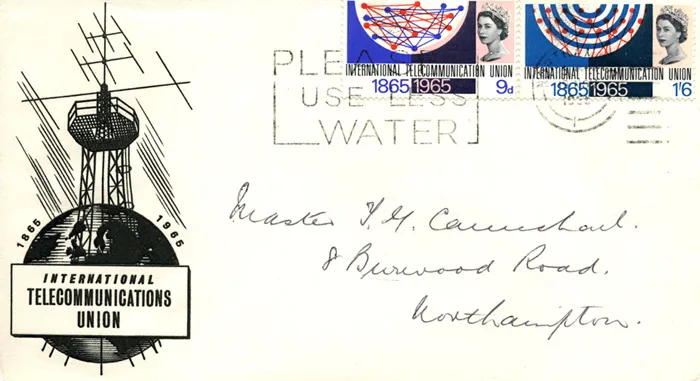 INTERNATIONAL TELECOMMUNICATION UNION
1865 1965 9d
INTERNATIONAL TELECOMMUNICATION UNION
1865 1965 1'6
PLEASE
USE LESS
WATER
1865 1965
INTERNATIONAL
TELECOMMUNICATIONS
UNION
Master
8 Burwood Road.
Northampton.